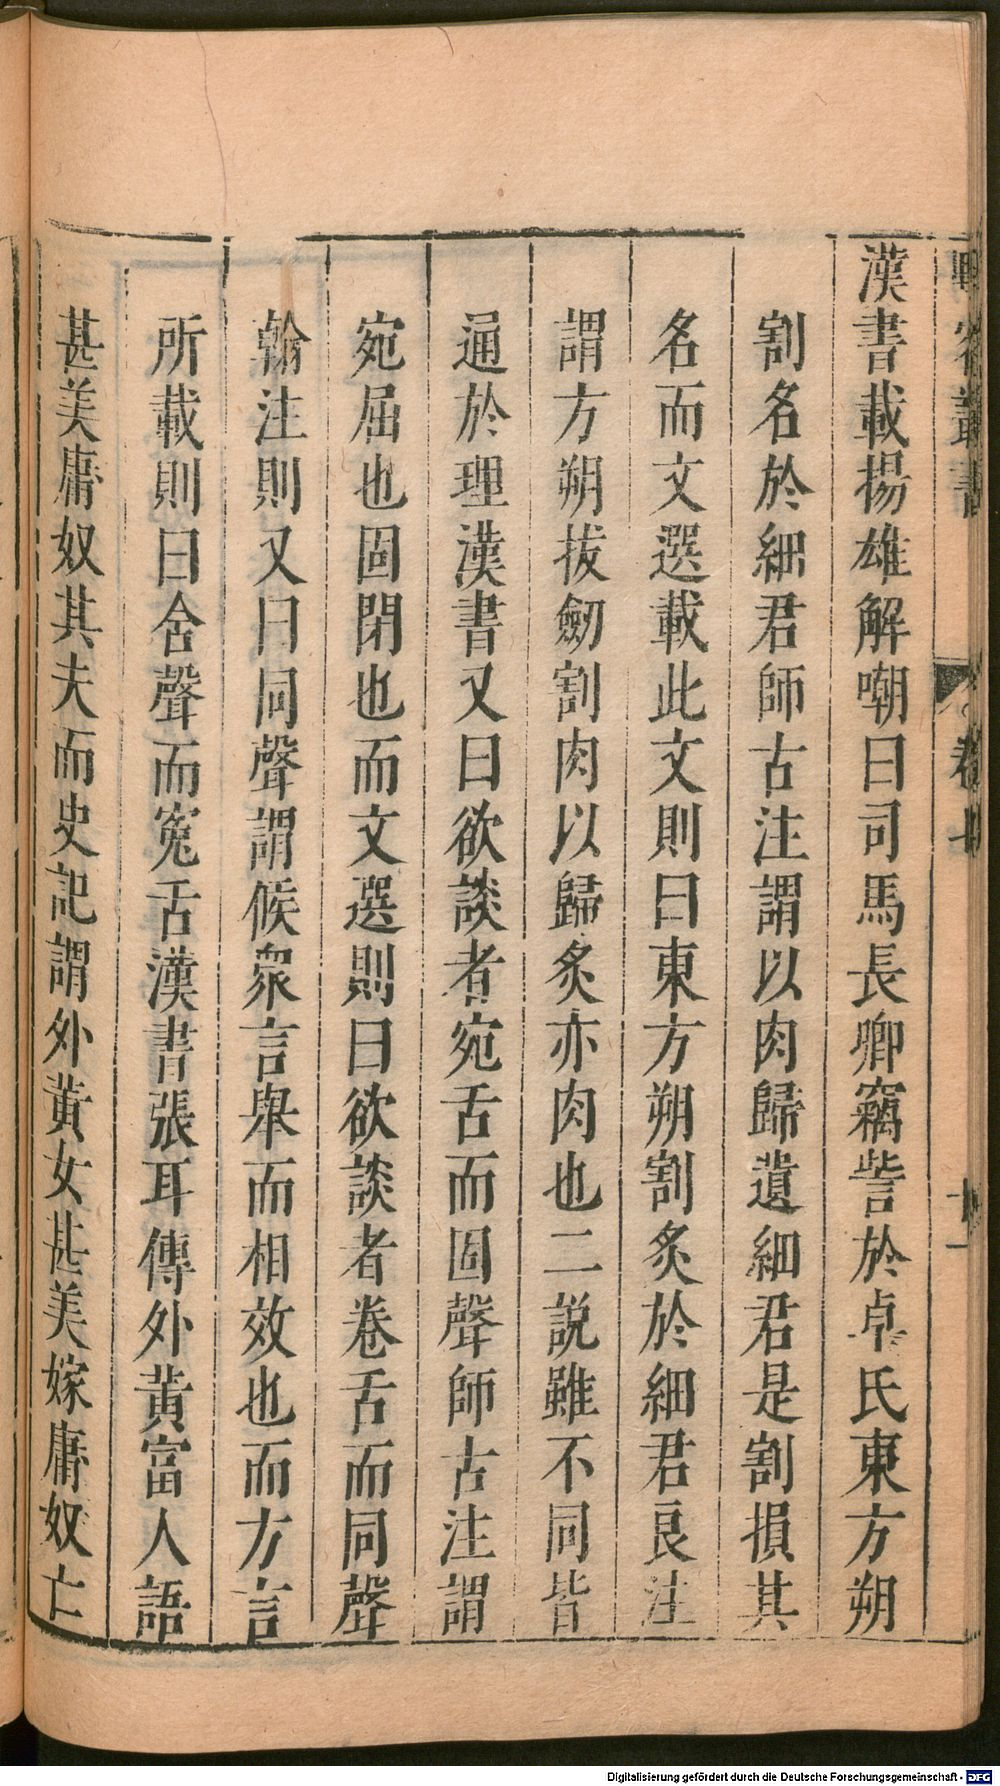 漢書載揚雄解嘲曰司馬長卿竊訾於卓氏東方朔
割名於細君師古注謂以肉歸遺細君是割損其
名而文選載此文則曰東方朔割炙於細君良注
謂方朔拔劒割肉以歸炙亦肉也二說雖不同皆
通於理漢書又曰欲談者宛舌而固聲師古注謂
宛屈也固閉也而文選則曰欲談者卷舌而同聲
翰注則又曰同聲謂候衆言舉而相效也而方言
所載則曰含聲而寃舌漢書張耳傳外黃富人語
甚美庸奴其夫而史記謂外黃女甚美嫁庸奴亡
Digitalisierung gefördert durch die Deutsche Forschungsgemeinschaft - DFG